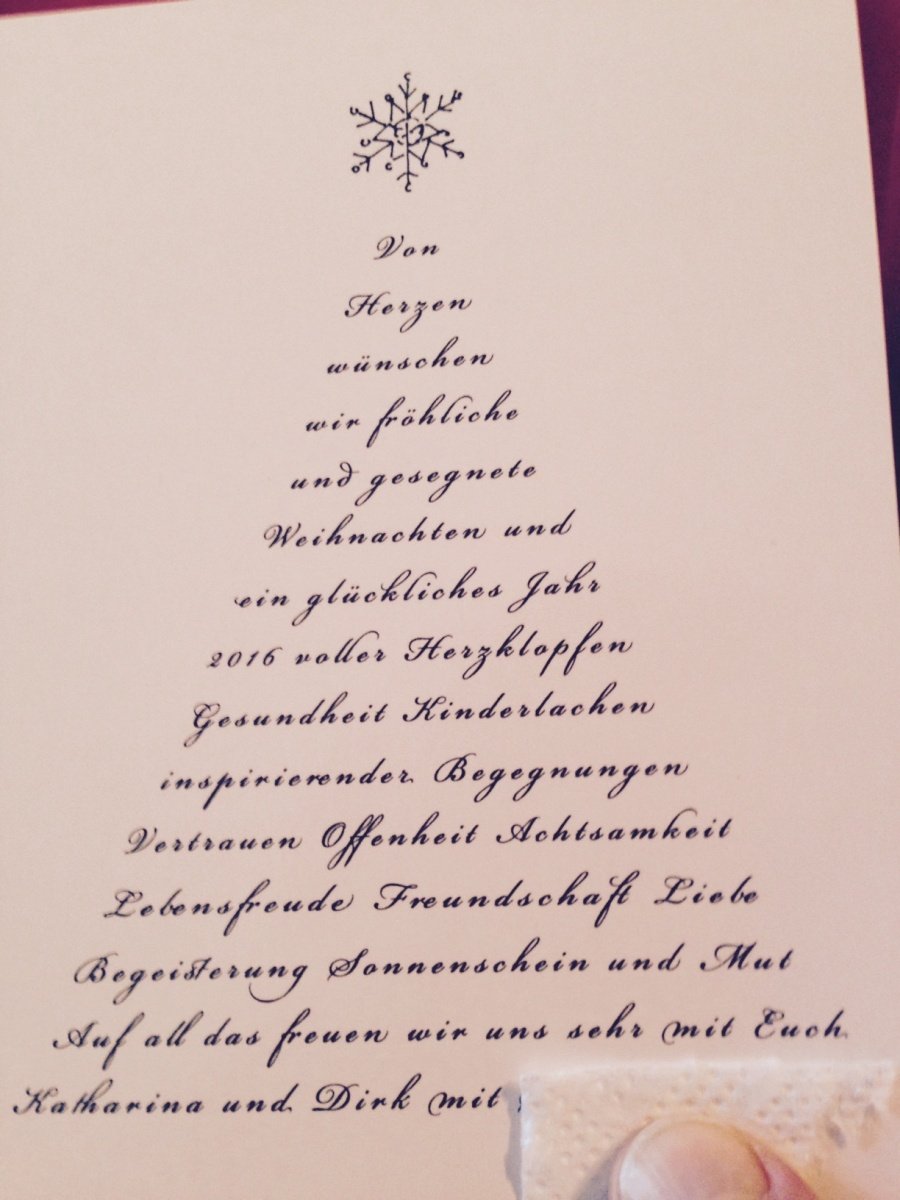 Von
Herzen
wünschen
wir fröhliche
und gesegnete
Weihnachten und
ein glückliches Jahr
2016 voller Herzklopfen
Gesundheit Kinderlachen
inspirierender Begegnungen
Vertrauen Offenheit Achtsamkeit
Lebensfreude Freundschaft Liebe
Begeisterung Sonnenschein und Mut
Auf all das freuen wir uns sehr mit Euch
Katharina und Dirk mit